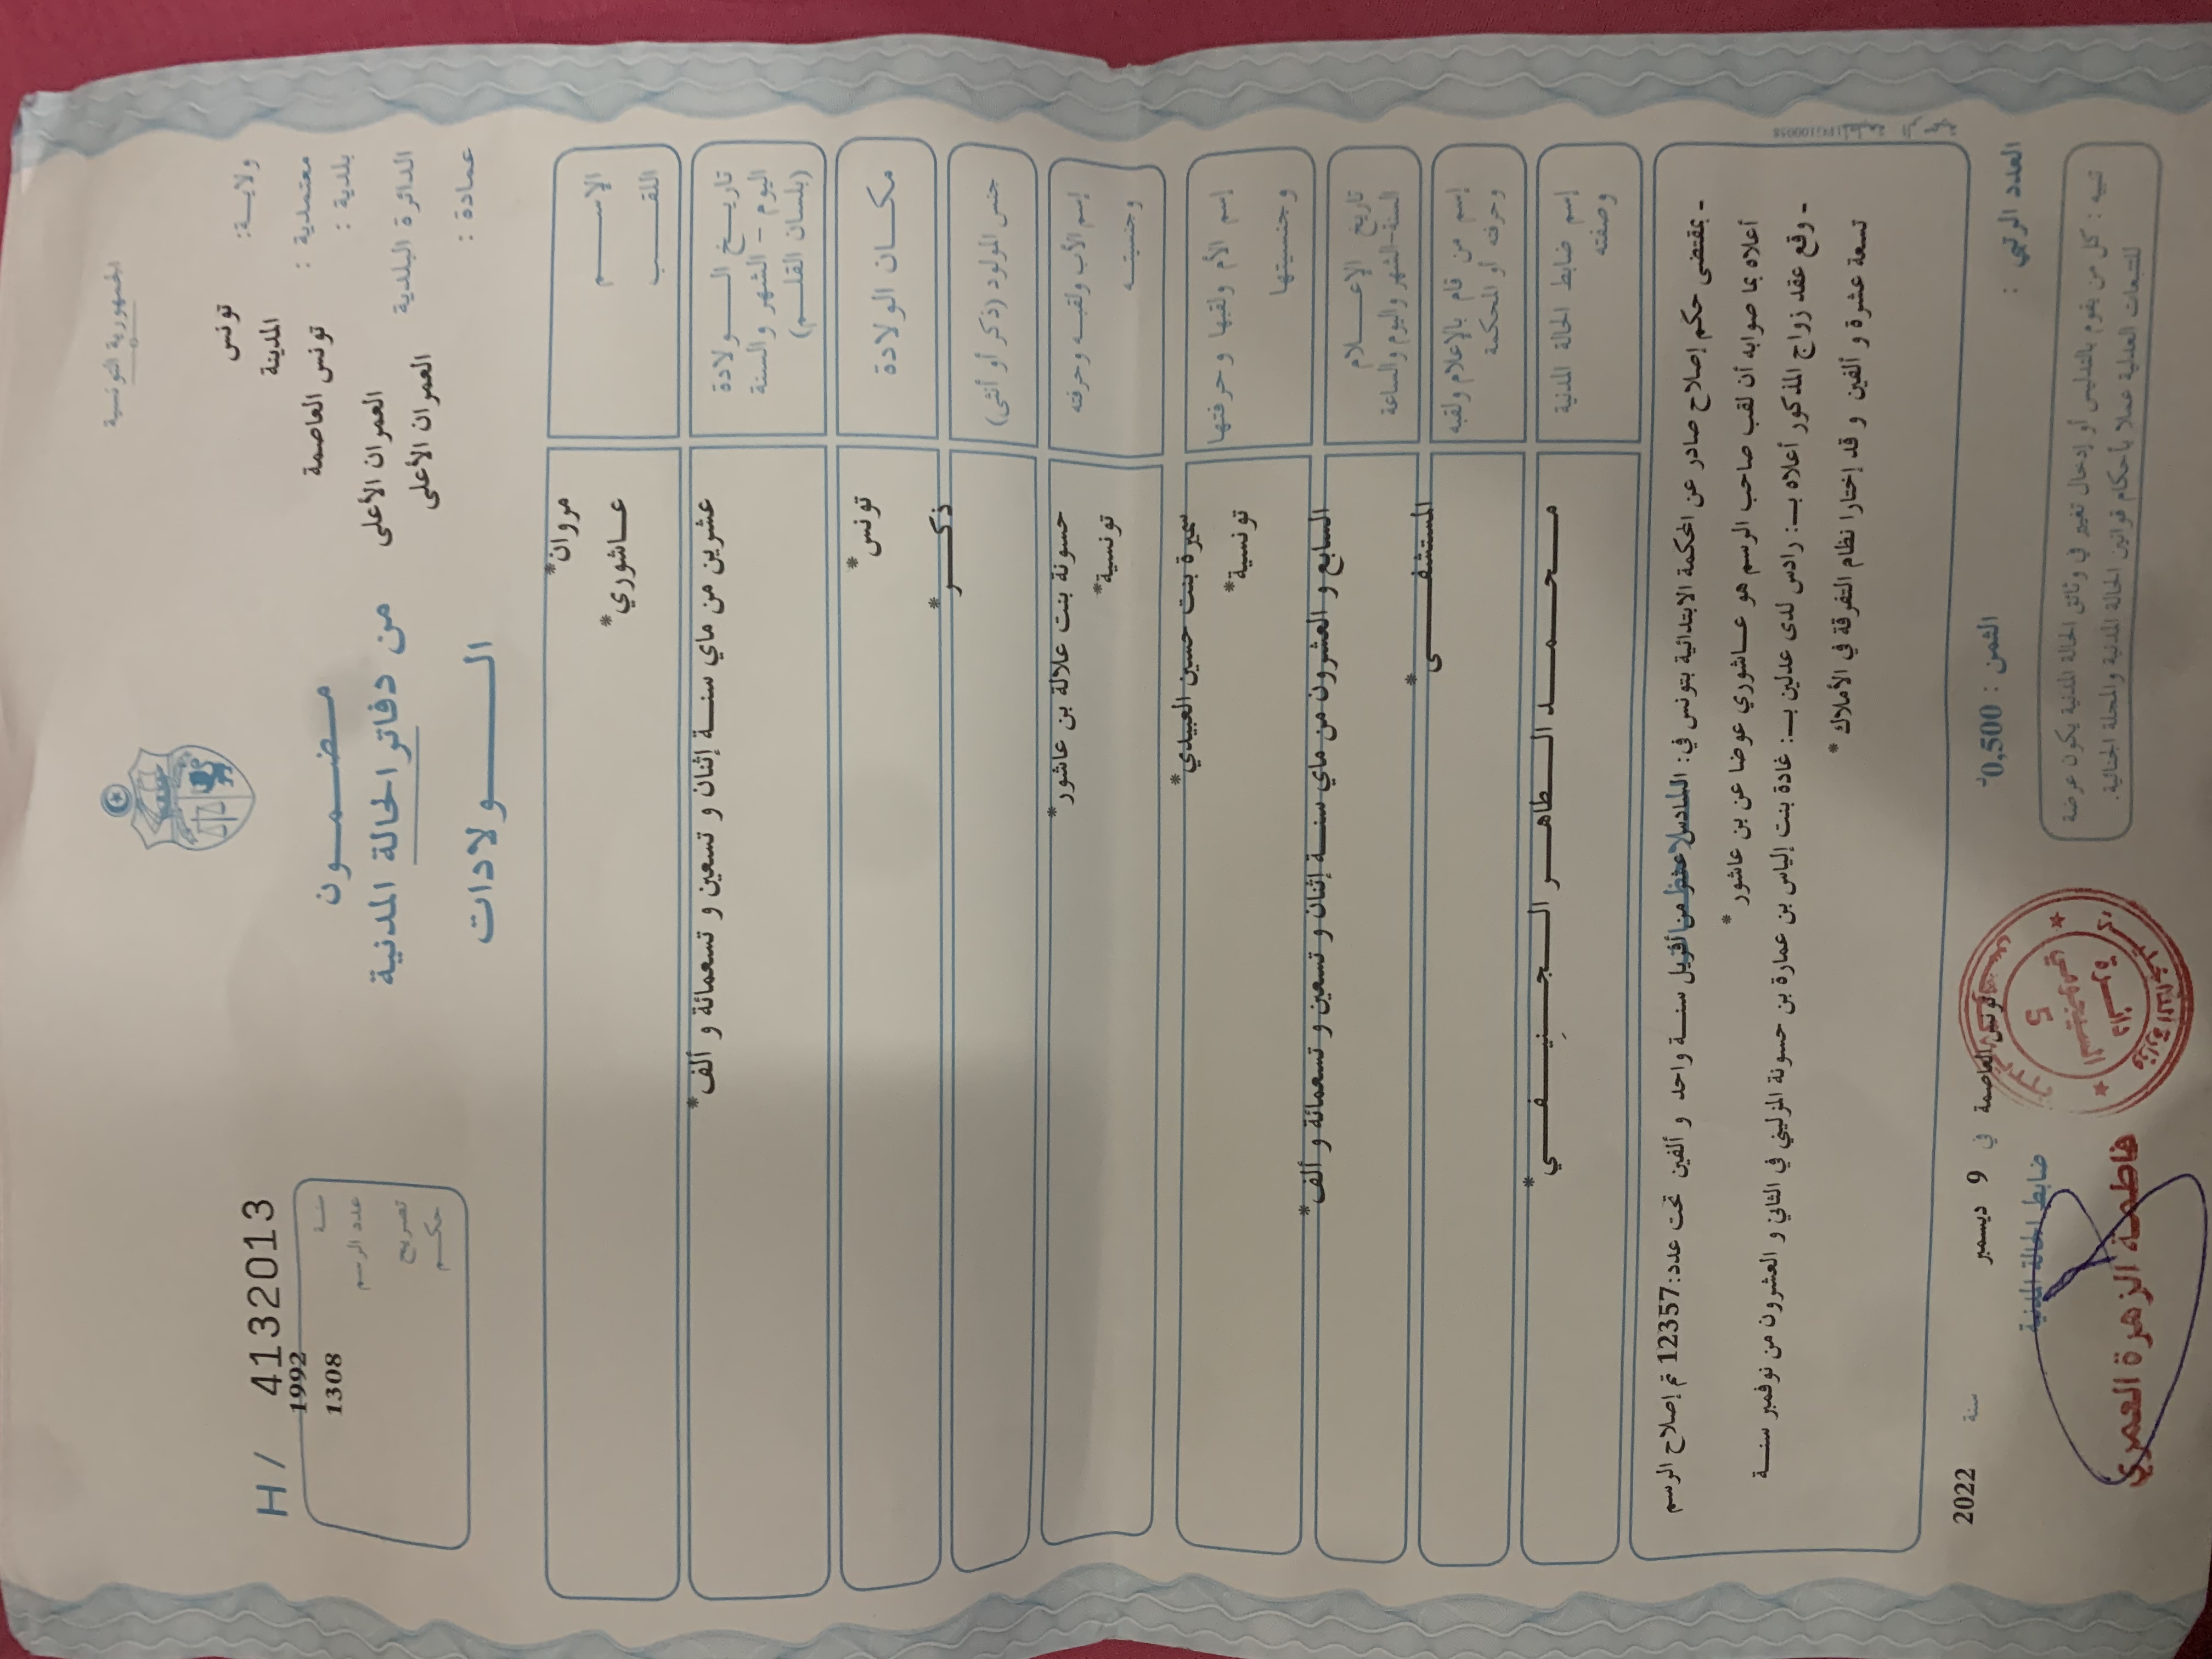 الجمهورية التونسية
ولايــة: تونس
معتمدية : المدينة
بلدية : تونس العاصمة
الدائرة البلدية العمران الأعلى
عمادة : العمران الأعلى
مـــضـــمـــون
من دفاتر الحالة المدنية
الــــــولادات
H/ 41322013
سنــة 1992
عدد الرسم 1308
تصريح
حكــم
الإســــــم مروان*
اللقــــب عــاشوري*
تاريــــخ الــــولادة
اليوم – الشهر والسنة
(بلسان القلــم)
عشرين من ماي سنــة إثنان و تسعين و تسعمائة و ألف*
مكــــان الولادة تونس*
جنس المولود (ذكر أو أنثى) ذكــــر*
إسم الأب ولقبــه وحرفته حسونة بنت علالة بن عاشور*
وجنسيتــه تونسية*
إسم الأم ولقبها وحرفتها سميرة بنت حسين العبيدي*
وجنسيتها تونسية*
تاريخ الإعــــلام
السنة-الشهر واليوم والساعة
السابع و العشرون من ماي سنــة إثنان و تسعين و تسعمائة و ألف*
إسم من قام بالإعلام ولقبه
وحرفته أو المحكمة
المستشفــــى*
إسم ضابط الحالة المدنية
وصفته
مــحــمــد الــطاهــر الــجــنِيــفــي*
- بمقتضى حكم إصلاح صادر عن المحكمة الابتدائية بتونس في: السادس عشر من أفريل سنــة واحد و ألفين تحت عدد:12357 تم إصلاح الرسم
أعلاه بما صوابه أن لقب صاحب الرسم هو عــاشوري عوضا عن بن عاشور*
- وقع عقد زواج المذكور أعلاه بــ: رادس لدى عدلين بــ: غادة بنت إلياس بن عمارة بن حسونة المزليني في الثاني و العشرون من نوفمبر سنــة
تسعة عشرة و ألفين و قد إختارا نظام التفرقة في الأملاك*
العدد الرتبي :
الثمن : 0,500د
تونس العاصمة في 9 ديسمبر سنة 2022
ضابط الحالة المدنية
فاطمة الزهرة العمري
تنبيه : كل من يقوم بالتدليس أو إدخال تغيير في وثائق الحالة المدنية يكون عرضة
للتتبعات العدلية عملا بأحكام قوانين الحالة المدنية والمجلة الجنائية.
5